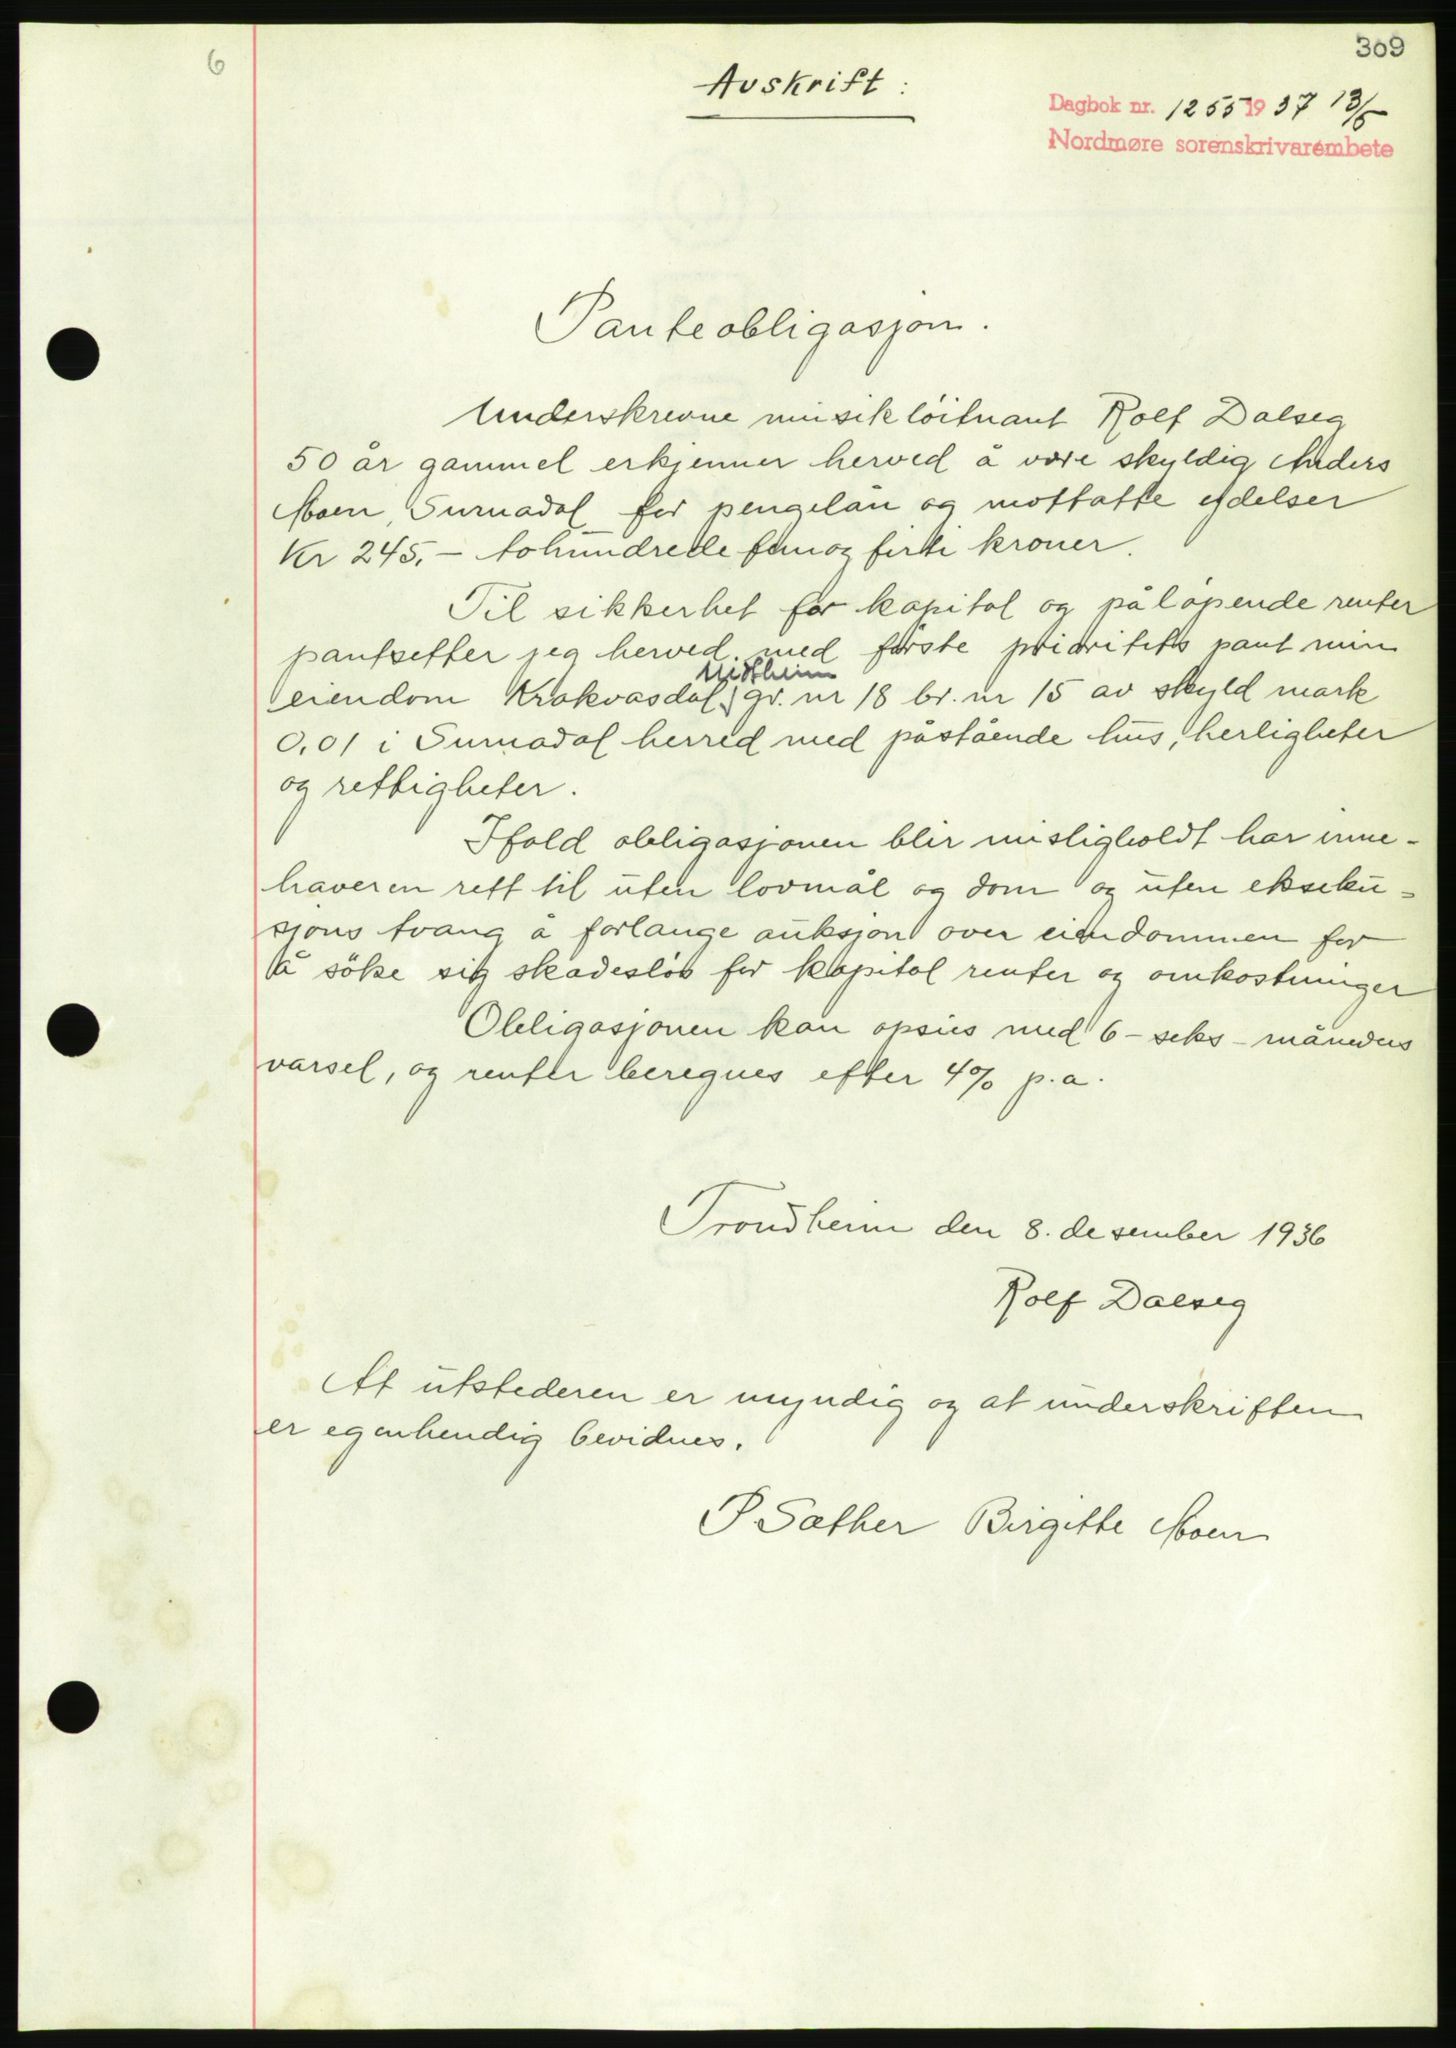 6
309
Avskrift :
Dagbok nr. 1255 1937 13/5
Nordmøre sorenskrivarembete
Panteobligasjon.
Underskrevne musikløitnant Rolf Dalseg
50 år gammel erkjenner herved å være skyldig Anders
Moen, Surnadal for pengelån og mottatte ydelser
Kr 245,- tohundrede femog førti kroner.
Til sikkerhet for kapital og påløpende renter
pantsetter jeg herved med første prioritets pant min
Midtheim
eiendom Krokvasdal, gr. nr 18 br. nr 15 av skyld mark
0,01 i Surnadal herred med påstående hus, herligheter
og rettigheter.
Ifald obligasjonen blir misligholdt har inne-
haveren rett til uten lovmål og dom og uten ekseku-
sjons tvang å forlange auksjon over eiendommen for
å søke sig skadesløs for kapital renter og omkostninger
Obligasjonen kan opsies med 6 - seks - måneders
varsel, og renter beregnes efter 4% p.a.
Trondheim den 8. desember 1936
Rolf Dalseg
At utstederen er myndig og at underskriften
er egenhendig bevidnes.
P. Sæther Birgitte Moen